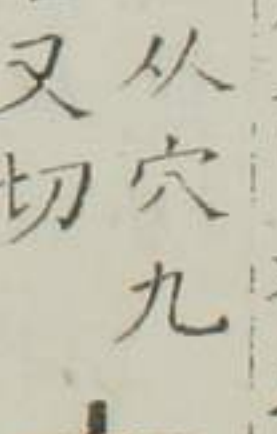 从穴九
又切